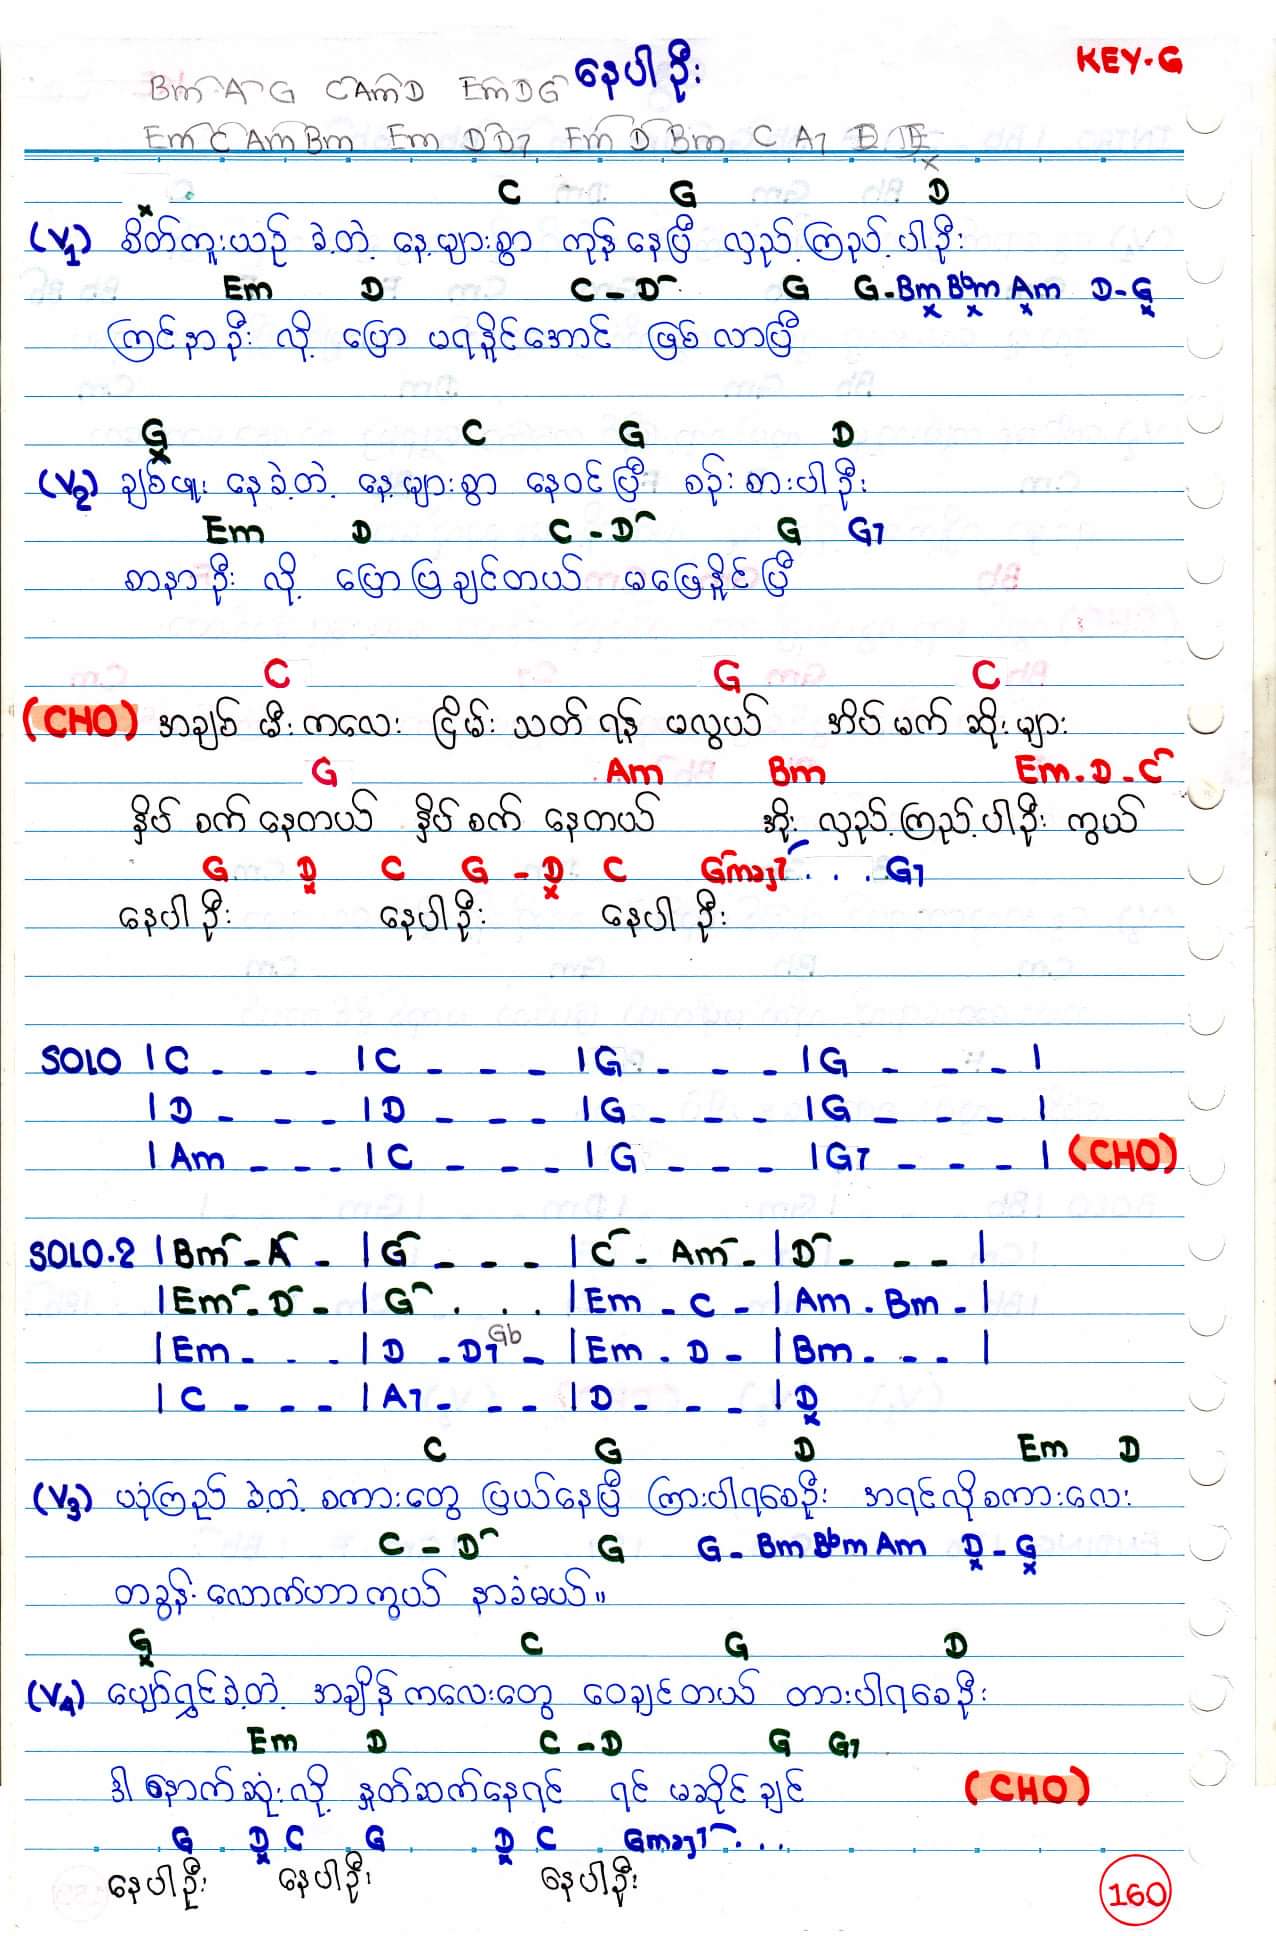 နေပါဦး
KEY-G
Bm A G C Am D Em D G
Em C Am Bm Em D D7 Em D Bm C A7
C G D
(V1) စိတ်ကူးယဉ် ခဲ့တဲ့ နေ့များစွာ ကုန်နေပြီ လှည့်ကြည့်ပါဦး
Em D C - D G G - Bm Bbm Am D - G
ကြင်နာဦး လို့ ပြော မရနိုင်အောင် ဖြစ်လာပြီ
G C G D
(V2) ချစ်ဖူး နေခဲ့တဲ့ နေ့များစွာ နေဝင်ပြီ စဉ်းစားပါဦး
Em D C - D G G7
စာနာဦး လို့ ပြောပြချင်တယ် မဖြေနိုင်ပြီ
C G C
(CHO) အချစ် မီးကလေး ငြိမ်းသတ်ရန် မလွယ် အိပ်မက်ဆိုးများ
G Am Bm Em - D - C
နှိပ်စက်နေတယ် နှိပ်စက်နေတယ် အိုး လှည့်ကြည့်ပါဦး ကွယ်
G D C G - D C Gmaj7 . . . G7
နေပါဦး နေပါဦး နေပါဦး
SOLO | C - - - | C - - - | G - - - | G - - - |
| D - - - | D - - - | G - - - | G - - - |
| Am - - - | C - - - | G - - - | G7 - - - | (CHO)
SOLO.2 | Bm - A - | G - - - | C - Am - | D - - - |
| Em - D - | G . . . | Em - C - | Am - Bm - |
| Em - - - | D - D7 Gb - | Em - D - | Bm - - - |
| C - - - | A7 - - - | D - - - | D
C G D Em D
(V3) ယုံကြည် ခဲ့တဲ့ စကားတွေ ပြယ်နေပြီ ကြားပါရစေဦး အရင်လိုစကားလေး
C - D G G - Bm Bbm Am D - G
တခွန်းလောက်ဟာကွယ် နာခံမယ်။
G C G D
(V4) ပျော်ရွှင်ခဲ့တဲ့ အချိန်ကလေးတွေ ဝေချင်တယ် တားပါရစေဦး
Em D C - D G G7
ဒါ နောက်ဆုံးလို့ နှုတ်ဆက်နေရင် ရင် မဆိုင်ချင် (CHO)
G D C G D C Gmaj7 . . .
နေပါဦး နေပါဦး နေပါဦး
160